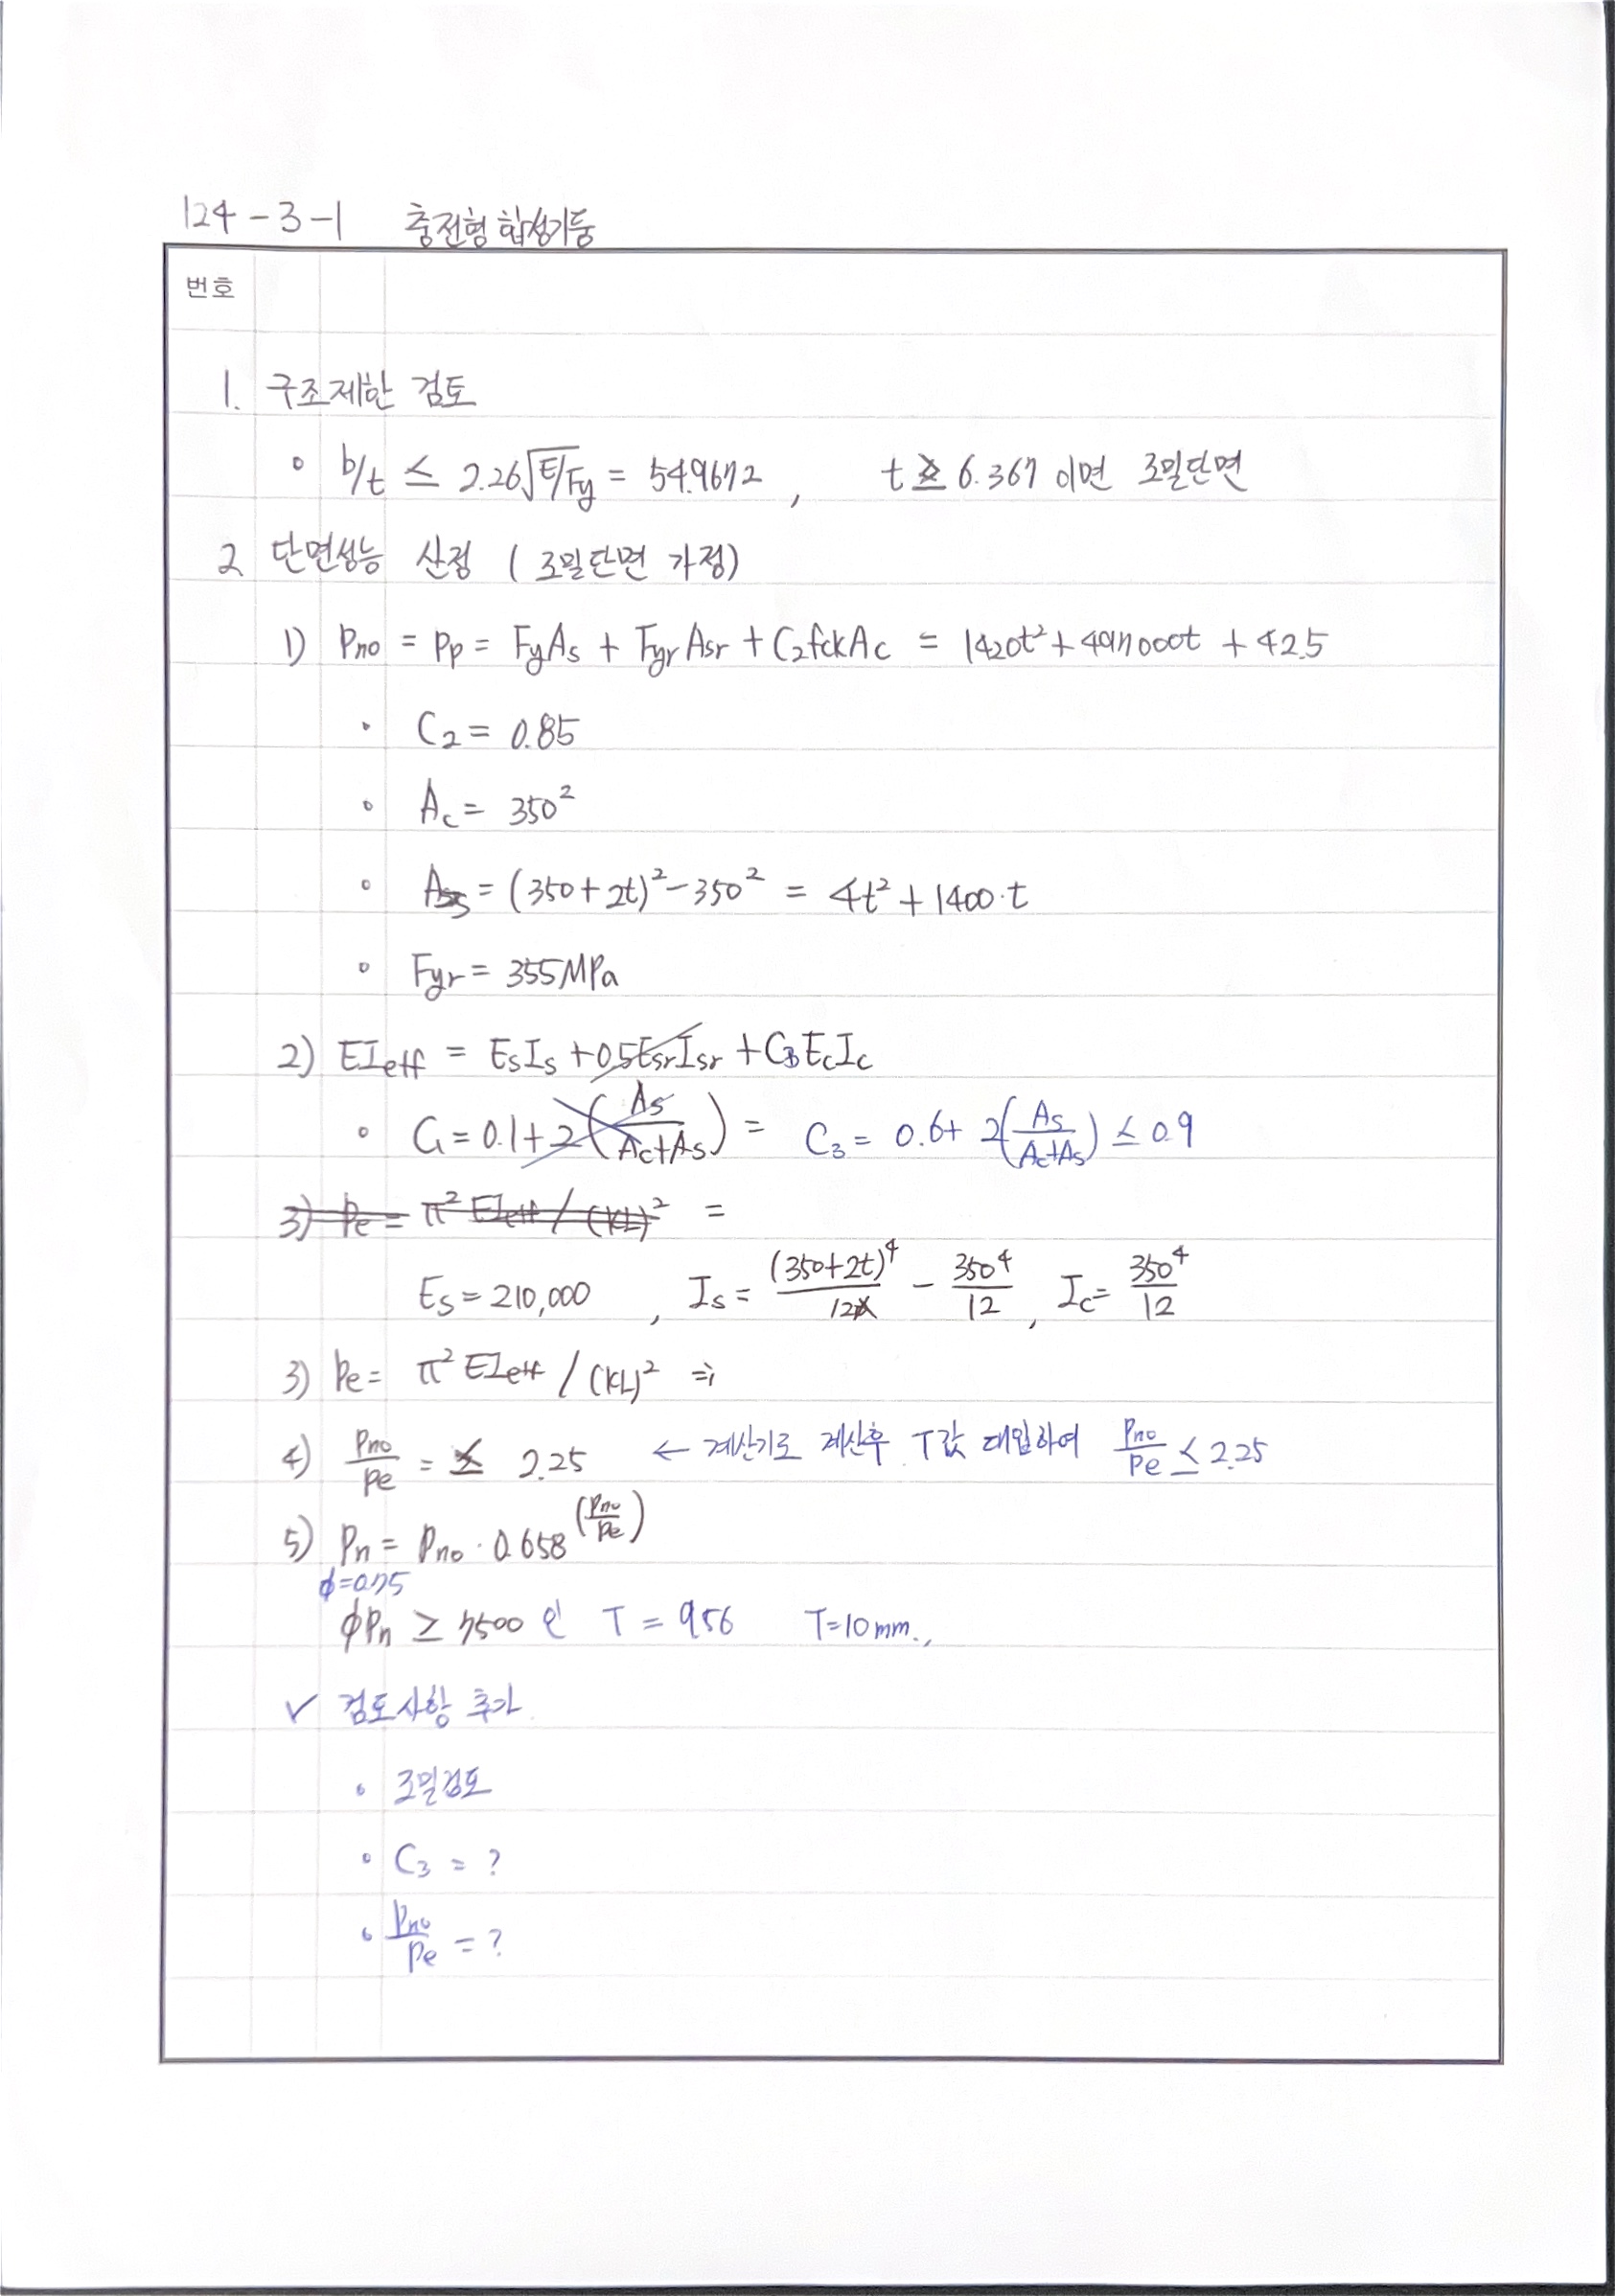 124-3-1 충전형 합성기둥
번호
1. 구조제한 검토
∘ b/t ≤ 2.26√E/Fy = 54.9672 , t ≥ 6.367 이면 조밀단면
2 단면성능 산정 ( 조밀단면 가정)
1) Pno = Pp = FyAs + FyrAsr + C2fckAc = 1420t² + 497000t + 42.5
· C2 = 0.85
∘ Ac = 350²
∘ As = (350+2t)² - 350² = 4t² + 1400·t
∘ Fyr = 355MPa
2) EIeff = EsIs + 0.5EsrIsr + C3EcIc
∘ C1 = 0.1 + 2(As/Ac+As) = C3 = 0.6 + 2(As/Ac+As) ≤ 0.9
3) Pe = π² EIeff / (KL)² =
Es = 210,000 , Is = (350+2t)⁴/12 - 350⁴/12 , Ic = 350⁴/12
3) Pe = π² EIeff / (KL)² ⇒
4) Pno/Pe = ≤ 2.25 ← 계산기로 계산후 T값 대입하여 Pno/Pe ≤ 2.25
5) Pn = Pno · 0.658^(Pno/Pe)
ϕ=0.75
ϕPn ≥ 7500 인 T = 9.56 T=10mm.,
✓ 검토사항 추가
∘ 조밀검토
∘ C3 = ?
∘ Pno/Pe = ?